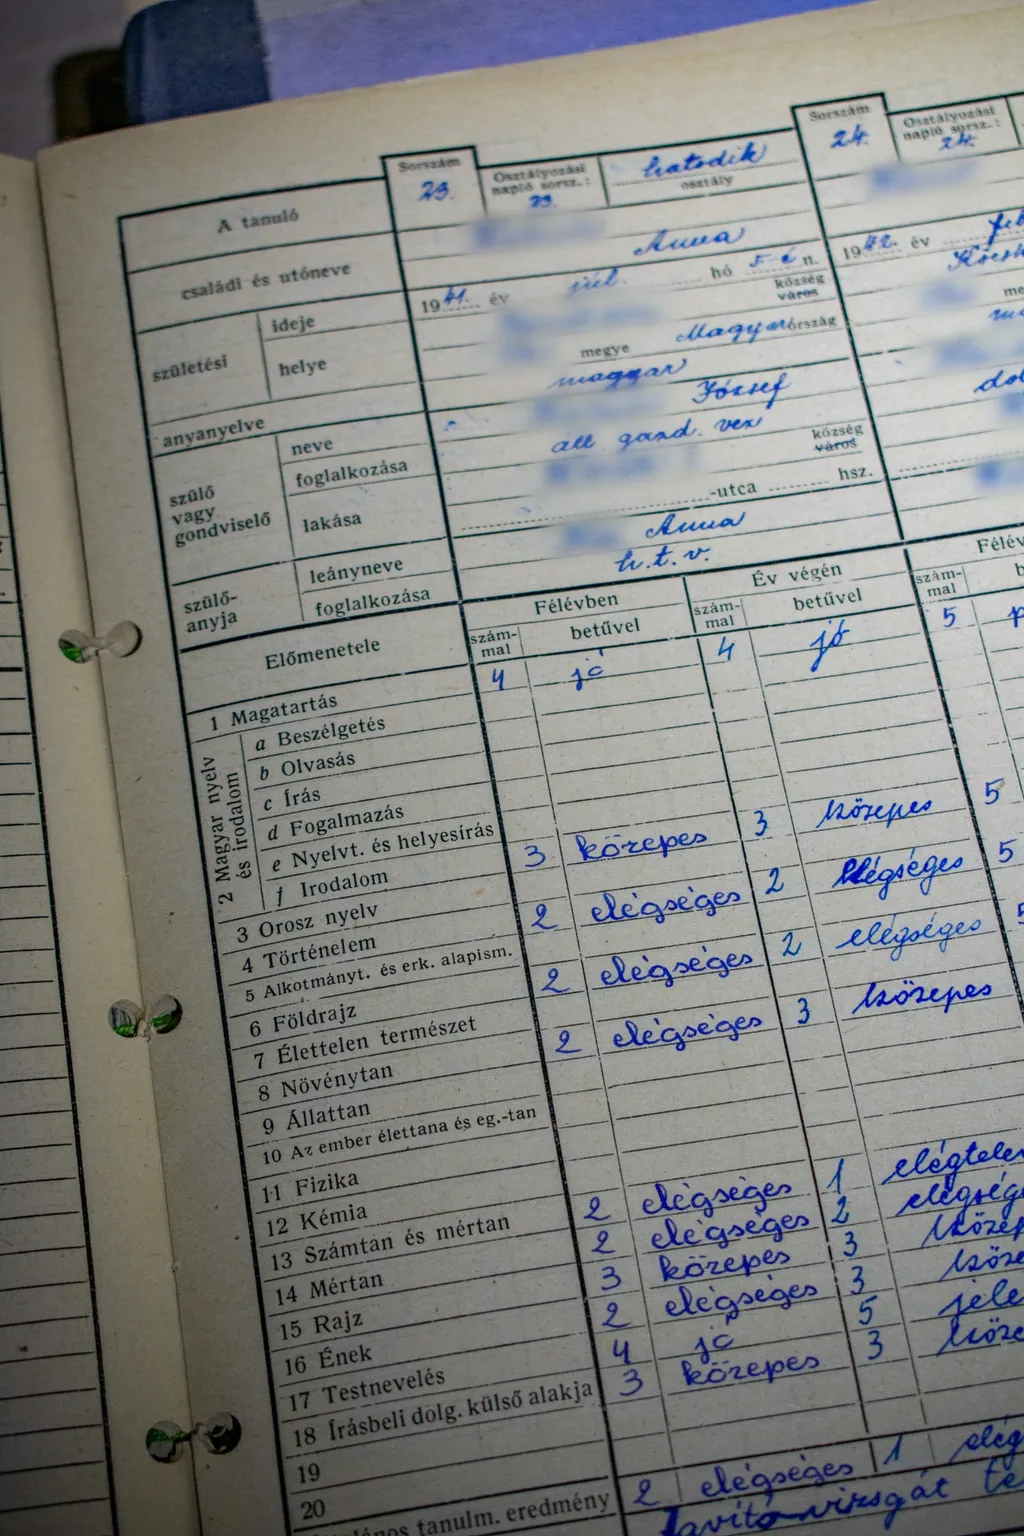 Sorszám 23. Osztályozási napló sorsz.: 23. hatodik osztály Sorszám 24. Osztályozási napló sorsz.: 24.
A tanuló
családi és utóneve Anna
születési ideje 1941. év júl. hó 5-én. 1942. év feb
helye község város
megye Magyarország
anyanyelve magyar
szülő vagy gondviselő neve József
foglalkozása áll. gazd. vez
lakása község város
-utca hsz.
szülőanyja leányneve Anna
foglalkozása h. t. v.
Előmenetele Félévben Év végén
számmal betűvel számmal betűvel számmal
1 Magatartás 4 jó 4 jó 5
2 Magyar nyelv és irodalom
a Beszélgetés
b Olvasás
c Írás
d Fogalmazás
e Nyelvt. és helyesírás
f Irodalom 3 közepes 3 közepes 5
3 Orosz nyelv
4 Történelem 2 elégséges 2 elégséges 5
5 Alkotmányt. és erk. alapism.
6 Földrajz 2 elégséges 2 elégséges 5
7 Élettelen természet
8 Növénytan 2 elégséges 3 közepes
9 Állattan
10 Az ember élettana és eg.-tan
11 Fizika
12 Kémia
13 Számtan és mértan 2 elégséges 1 elégtelen
14 Mértan 2 elégséges 2 elégsége
15 Rajz 3 közepes 3 közep
16 Ének 2 elégséges 3 köze
17 Testnevelés 4 jó 5 jele
18 Írásbeli dolg. külső alakja 3 közepes 3 köze
19
20
tanulm. eredmény 2 elégséges 1 elég
Javítóvizsgát te